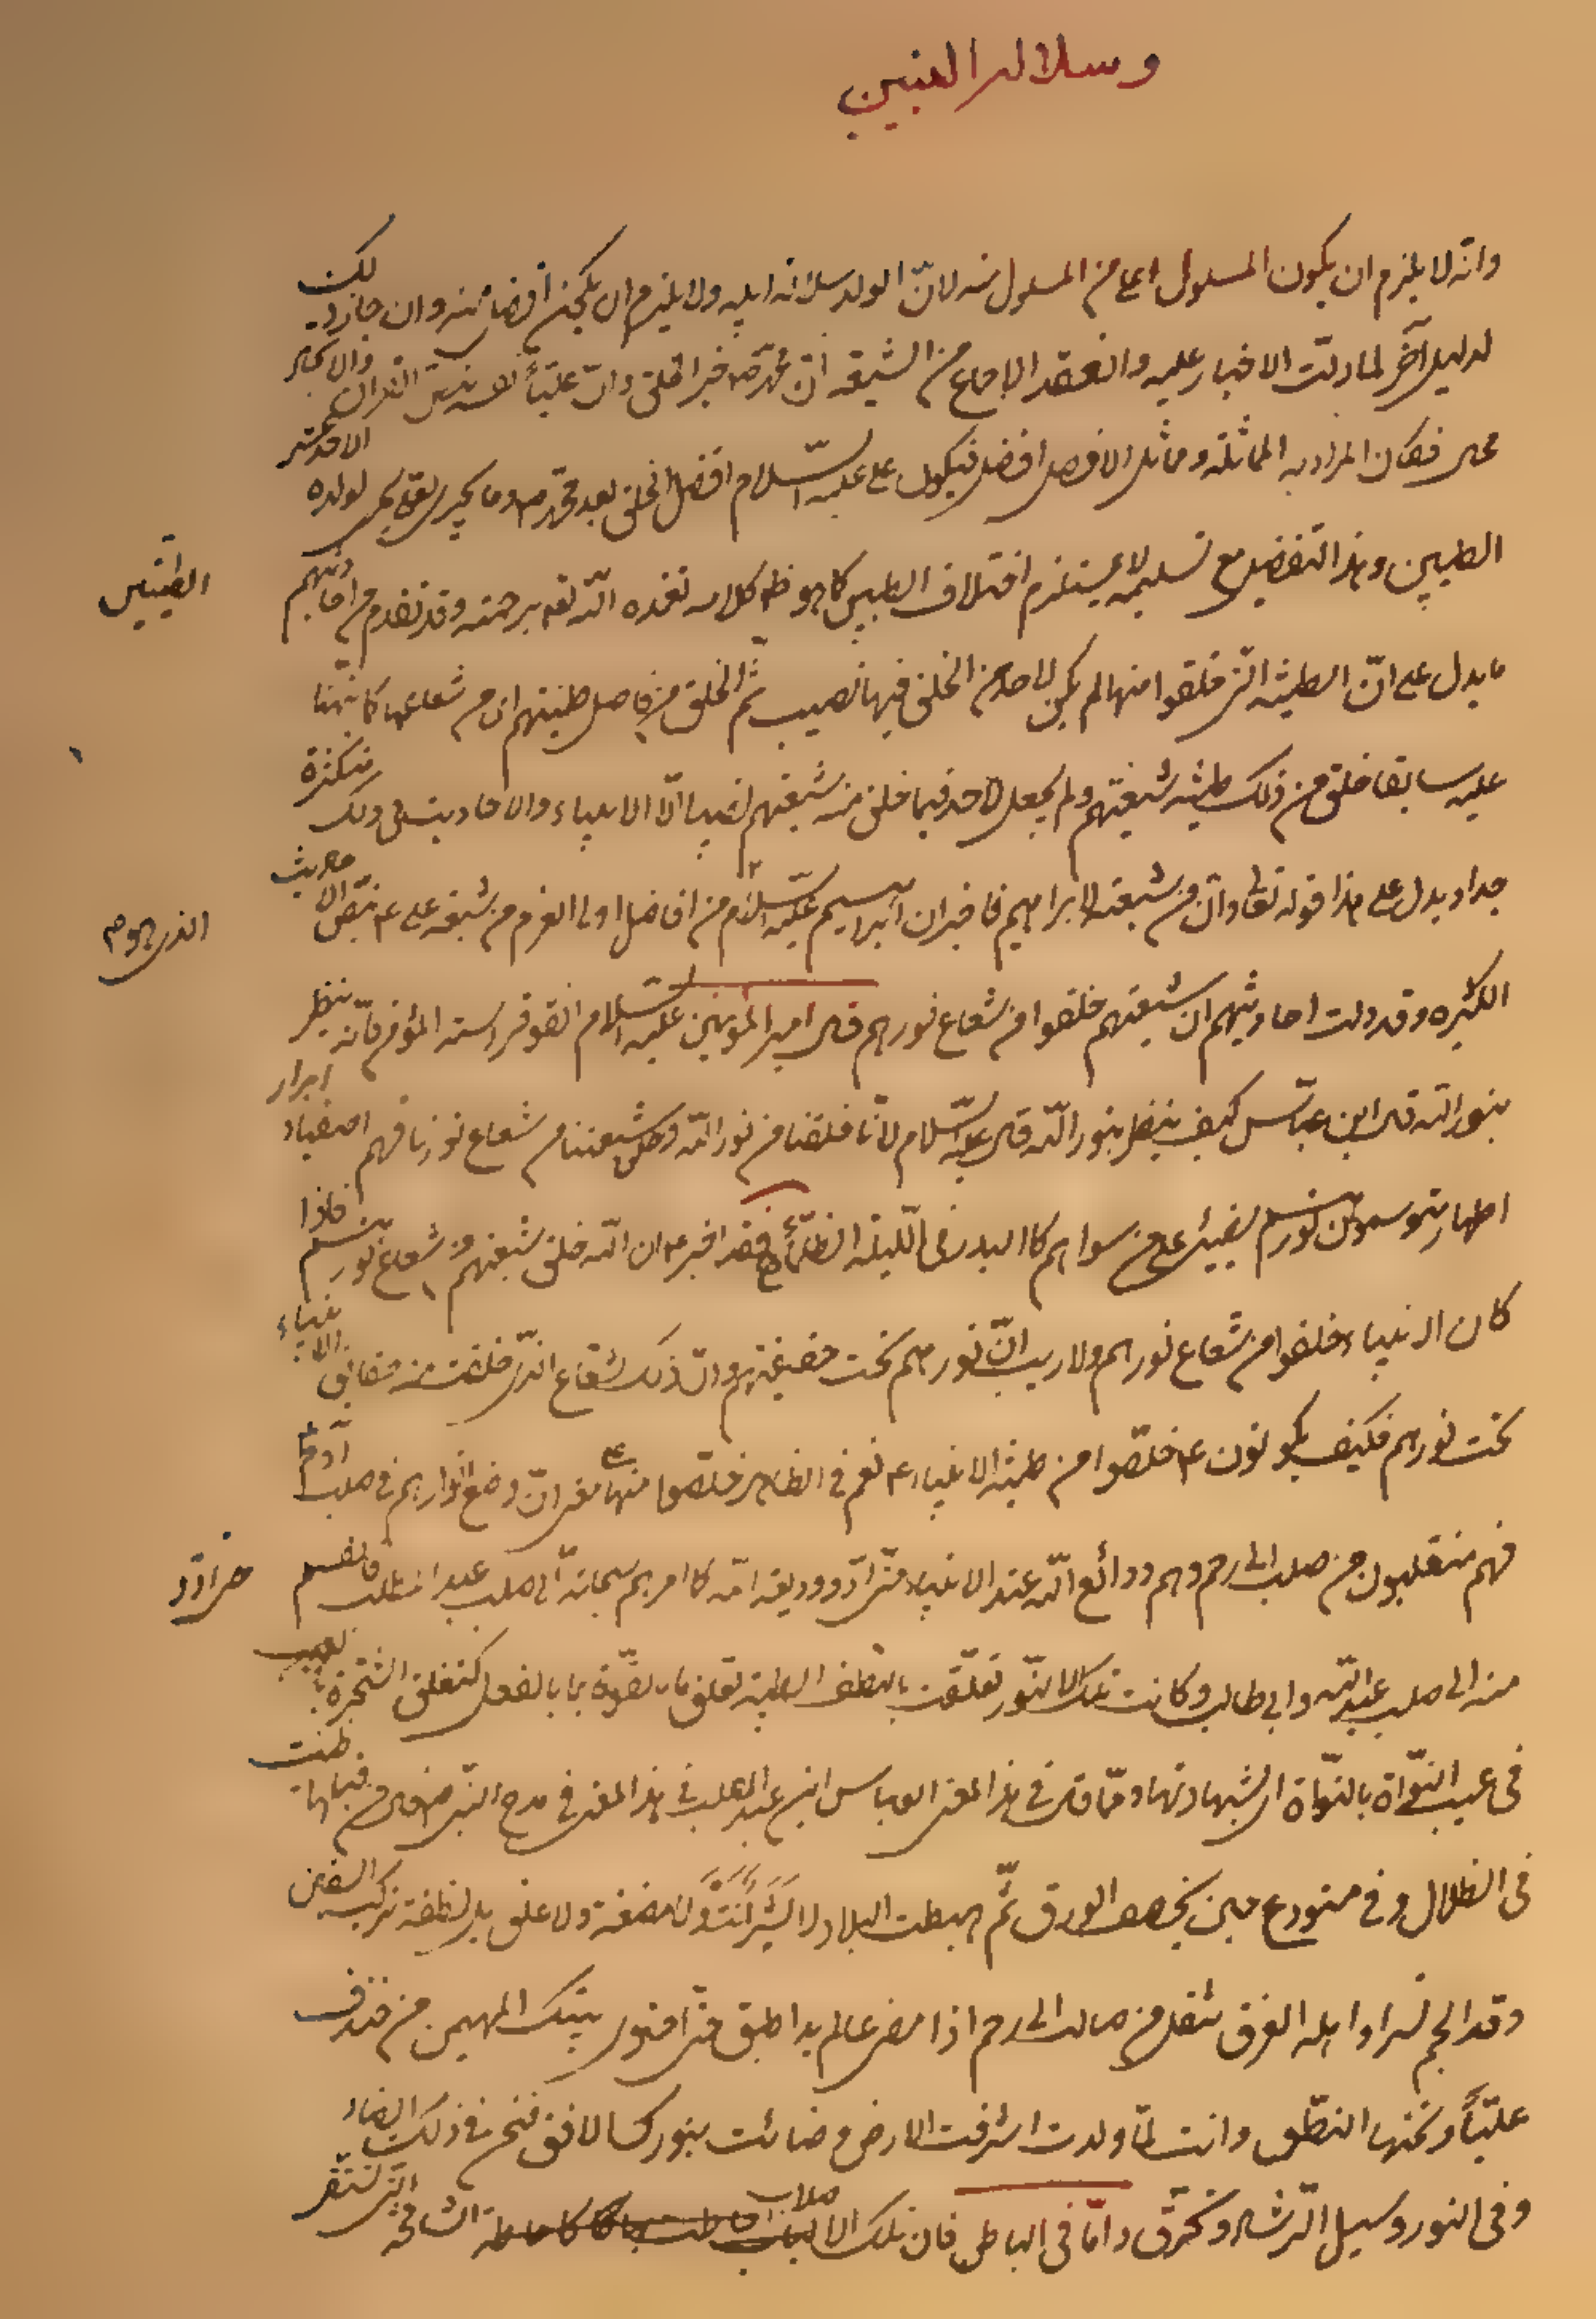 وسلالة النبيين
وانه لا يلزم ان يكون المسلول اعلى من المسلول منه لانّ الولد سلالة ابيه ولا يلزم ان يكون افضل منه وان جاز ذلك
لدليل آخر لما دلّت الاخبار عليه وانعقد الاجماع من الشيعة انّ محمدا ص خير الخلق وانّ عليّاً نفسه بنصّ القران والاكبر
محمد فكان المراد به المماثلة ومماثل الافضل افضل فيكون علي عليه السّلام افضل الخلق بعد محمد ص وما يجرى لعلى يجرى لولده
الاحد عشر
الطيبين وهذا التفضيل مع تسليمه لا يستلزم اختلاف الطيبين كما هو ظ كلامه تغمده اللّه تعه برحمته وقد تقدم من احاديثهم
الطينتين
ما يدل على انّ الطينة التى خلقوا منها لم يكن لاحد من الخلق فيها نصيب ثمّ الخلق من فاضل طينتهم اى من شعاعها كما نبّهنا
عليه سابقا خلق من ذلك طينة شيعتهم ولم يجعل لاحد فيما خلق منه شيعتهم نصيبا الّا الانبياء والاحاديث فى ذلك متكثرة
جدا ويدل على هذا قوله تعالى وان من شيعته لابراهيم فاخبر ان ابراهيم عليه السّلام من افاضل اولى العزم من شيعة على ع بنصّ الاحاديث
الذى هو
الكثيره وقد دلت احاديثهم ان شيعتهم خلقوا من شعاع نورهم قال امير المؤمنين عليه السّلام اتقو فراسة المؤمن فانّه ينظر
بنور اللّه قال ابن عبّاس كيف ينظر بنور اللّه قال عليه السّلام لانّا خلقنا من نور اللّه وخلق شيعتنا من شعاع نورنا فهم اصفياء ابرار
اطهار متوسمون نورهم يضيئ على من سواهم كالبدر فى الليلة الظلماء فقد اخبر ع ان اللّه خلق شيعتهم من شعاع نورهم فاذا
كان الانبياء خلقوا من شعاع نورهم ولا ريب انّ نورهم تحت حقيقتهم وانّ ذلك الشعاع الذى خلقت منه حقايق الانبياء
تحت نورهم فكيف يكونون ع خلقوا من طينة الانبياء ع نعم فى الظاهر خلقوا منها بمعنى انّ وضع انوارهم فى صلب آدم
فهم منقلبون من صلب الى رحم وهم ودائع اللّه عند الانبياء حتى ادّوا وديعة اللّه كما امرهم سبحانه الى صلب عبد المطلب فانقسم
حتى ادّوا
منه الى صلب عبد اللّه وابى طالب وكانت تلك الانوار تعلّقت بالنطف الطيبة تعلق ما بالقوّة بما بالفعل كتعلق الشجرة
فى غيب النّواة بالنّواة اى بشهادتها وممّا قال فى هذا المعنى العباس ابن عبد المطلب فى هذا المعنى فى مدح النبى ص قال من قبلها طبت
فى الظلال وفى مستودع حين يخصف الورق ثمّ هبطت البلاد لا بَشَرٌ أنتَ ولا مضغة ولا علق بل نطفة تركب السفين
وقد الجم نسرا واهله الغرق تنقل من صالب الى رحم اذا مضى عالم بدا طبق حتّى احتوى بيتك المهيمن من خندف
علياءً تحتها النطّق وانت لمّا ولدت اشرقت الارض وضائت بنورك الافق فنحن فى ذلك الضياء
وفى النور وسبل الرّشاد نخترق وامّا فى الباطن فان تلك الاصلاب التى تنتقل